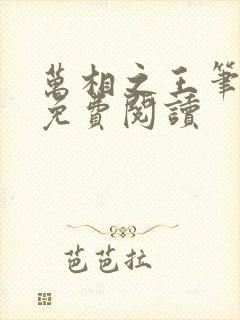 萬相之王筆
免費閱讀
芭芭拉